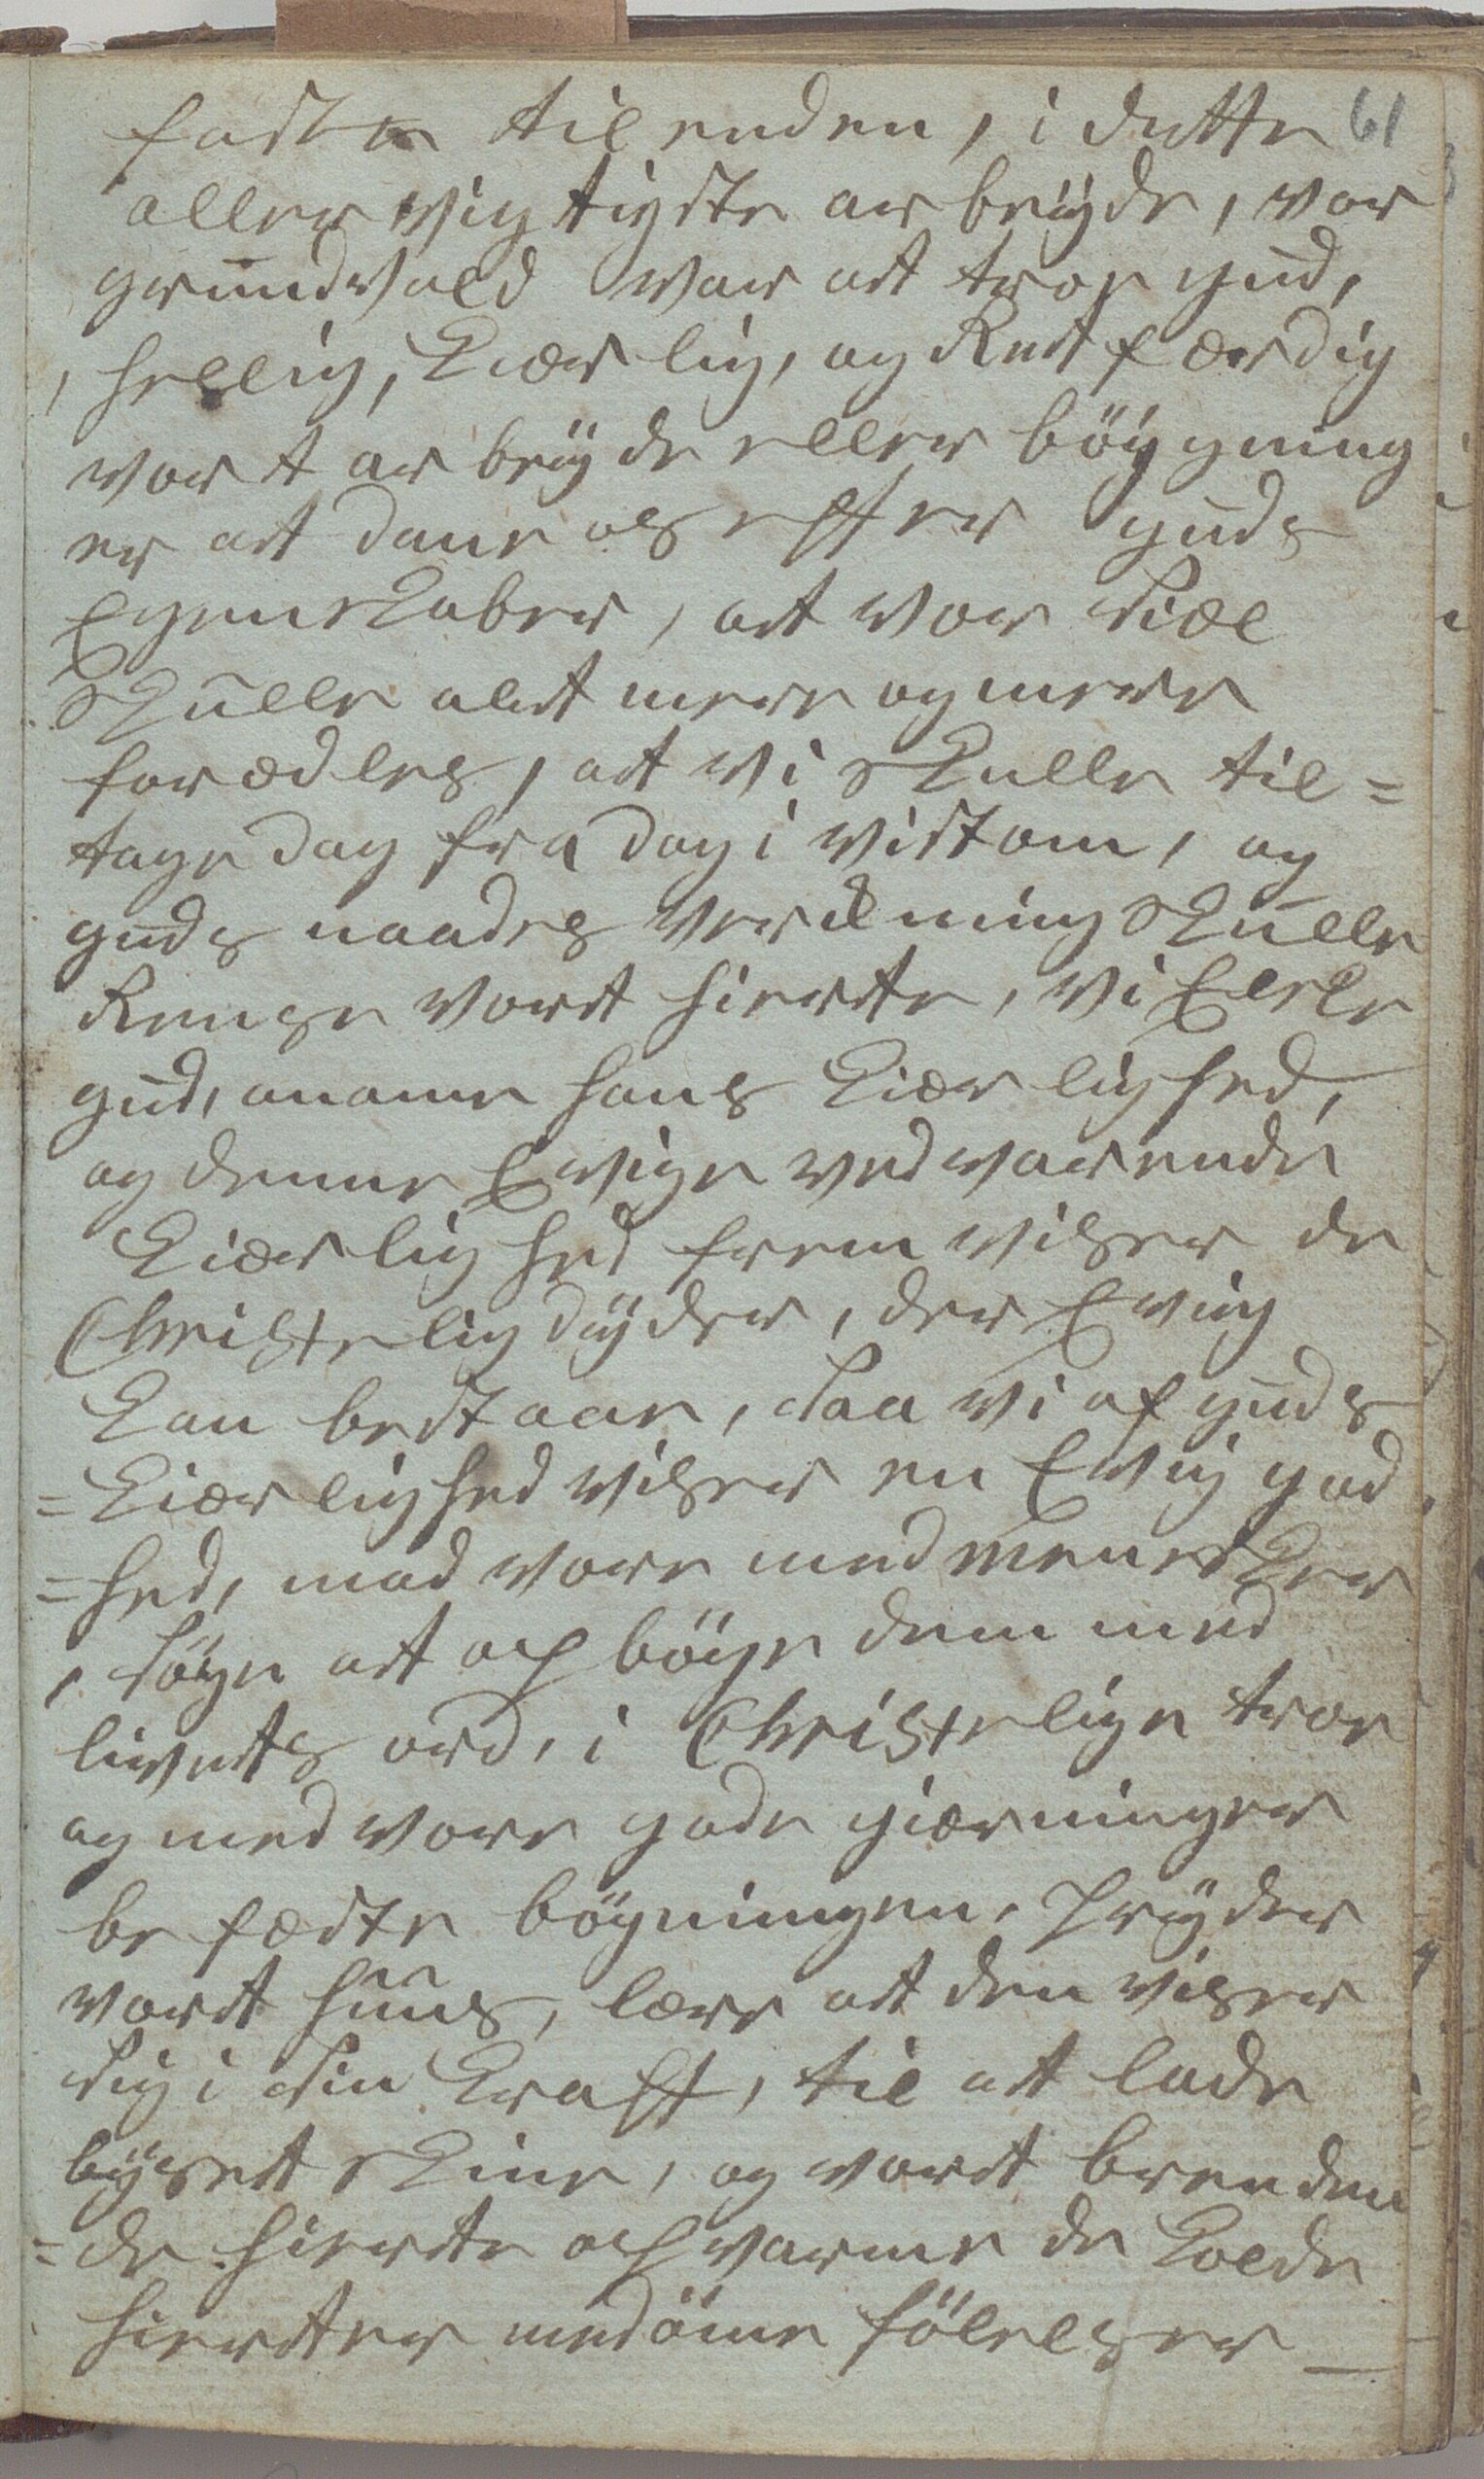 faste til enden, i dette 61
aller vigtigste arbeÿde, vor
grundvold var at troe gud,
, hellig, kiærlig, og Retfærdig
vort arbeÿde eller böÿgning
er at dane os efter guds
Egenskaber, at vor Siæl
Skulle alt mere og mere
forædles, at vi Skulle til=
tage dag fra dag i visdom, og
guds naades verckning Skulle
Rense vort hierte, vi Elske
gud, aname hans kiærlighed,
og denne Ewige vedvarende
kiærlighed fremviser de
Christelig dÿder, der Ewig
kan bestaae, Saa vi af guds
=kiærlighed viser en Ewig god
=hed, mod vore medmenesker
, Söge at opböÿge dem med
livets ord, i Christelige troe
og med vore gode giærninger
befæste böÿgningen, Prÿder
vort huus, lære at den viser
Sig i Sin kraft, til at lade
lÿset Skine, og vort brenden
=de hierte opvarme de kolde
hierter med öme fölelser